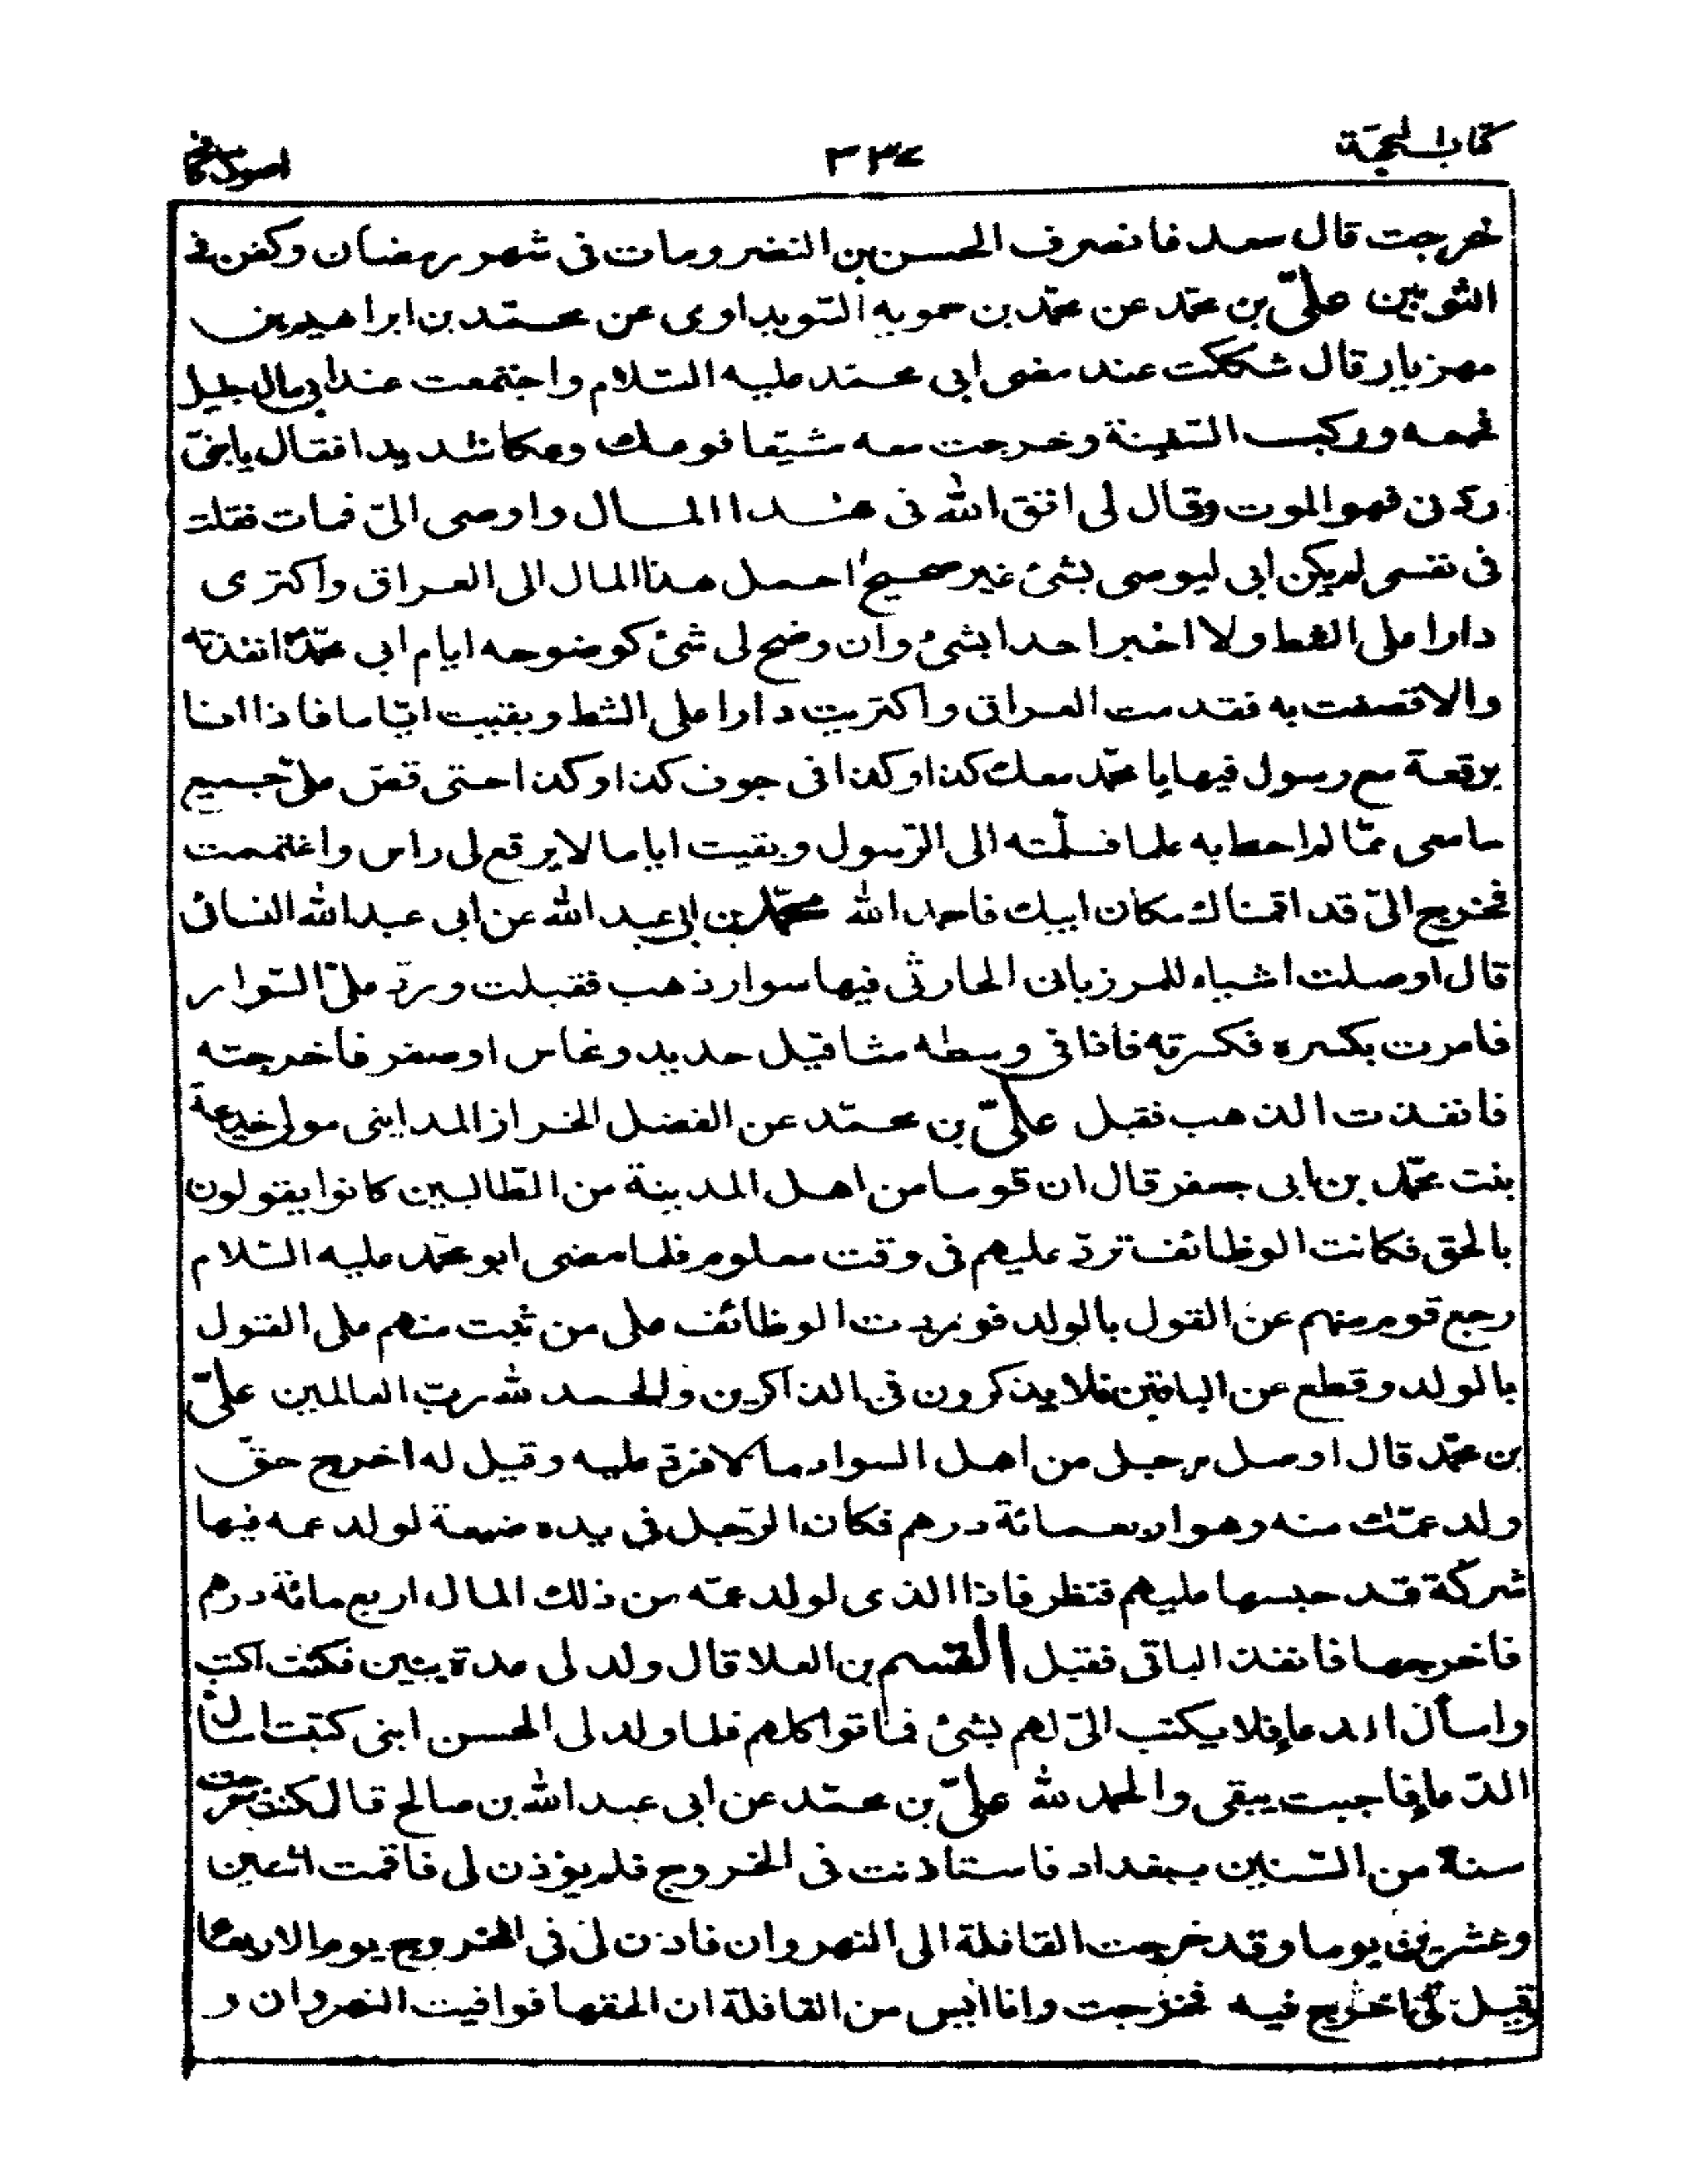 كتاب الحجة ٣٣٤ اصول كافى
خرجت قال سعد فانصرف الحسن بن النضر ومات فى شهر رمضان وكفن فى
الثوبين علىّ بن محمّد عن محمّد بن حمويه السويداوى عن محمّد بن ابراهيم بن
مهزيار قال شككت عند مضى ابى محمّد عليه السّلام واجتمعت عند ابى مال جليل
فحمعه وركب السّفينة وخرجت معه مشيّعا فوعك وعكا شديدا فقال يابنىّ
ردّنى فهو الموت وقال لى اتق الله فى هذا المال واوصى الىّ فمات فقلت
فى نفسى لم يكن ابى ليوصى بشئ غير صحيح احمل هذا المال الى العراق واكترى
دارا على الشط ولا اخبر احدا بشئ وان وضح لى شئ كوضوحه ايام ابى محمّدؑ انفذته
والا قصفت به فقدمت العراق واكتريت دارا على الشط وبقيت ايّاما فاذا انا
برقعة مع رسول فيها يا محمّد معك كذا وكذا فى جوف كذا وكذا حتى قصّ علىّ جميع
ما معى ممّا لم احط به علما فسلّمته الى الرّسول وبقيت اياما لا يرفع لى راس واغتممت
فخرج الىّ قد اقمناك مكان ابيك فاحمد الله محمّد بن ابى عبد الله عن ابى عبد الله النسائى
قال اوصلت اشياء للمرزبانى الحارثى فيها سوار ذهب فقبلت وردّ علىّ السّوار
فامرت بكسره فكسرته فاذا فى وسطه مثاقيل حديد ونحاس او صفر فاخرجته
فانفذت الذهب فقبل علىّ بن محمّد عن الفضل الخراز المداينى مولى خديجة
بنت محمّد بن ابى جعفر قال ان قوما من اهل المدينة من الطّالبين كانوا يقولون
بالحق فكانت الوظائف تردّ عليهم فى وقت معلوم فلما مضى ابو محمّد عليه السّلام
رجع قوم منهم عن القول بالولد فوردت الوظائف على من ثبت منهم على القول
بالولد وقطع عن الباقين فلا يذكرون فى الذاكرين والحمد لله ربّ العالمين علىّ
بن محمّد قال اوصل رجل من اهل السواد مالا فردّ عليه وقيل له اخرج حقّ
ولد عمّك منه وهو اربعمائة درهم فكان الرّجل فى يده ضيعة لولد عمه فيها
شركة قد حبسها عليهم فنظر فاذا الذى لولد عمّه من ذلك المال اربع مائة درهم
فاخرجها فانفذ الباقى فقبل القسم بن العلا قال ولد لى عدة بنين فكنت اكتب
واسأل الدعاء فلا يكتب الىّ لهم بشئ فماتوا كلهم فلما ولد لى الحسن ابنى كتبت اسال
الدّعاء فاجبت يبقى والحمد لله علىّ بن محمّد عن ابى عبد الله بن صالح قال كنت خرجت
سنة من السّنين ببغداد فاستاذنت فى الخروج فلم يؤذن لى فاقمت اثنين
وعشرين يوما وقد خرجت القافلة الى النهروان فاذن لى فى الخروج يوم الاربعاء
وقيل لى اخرج فيه فخرجت وانا ائيس من القافلة ان الحقها فوافيت النهروان و